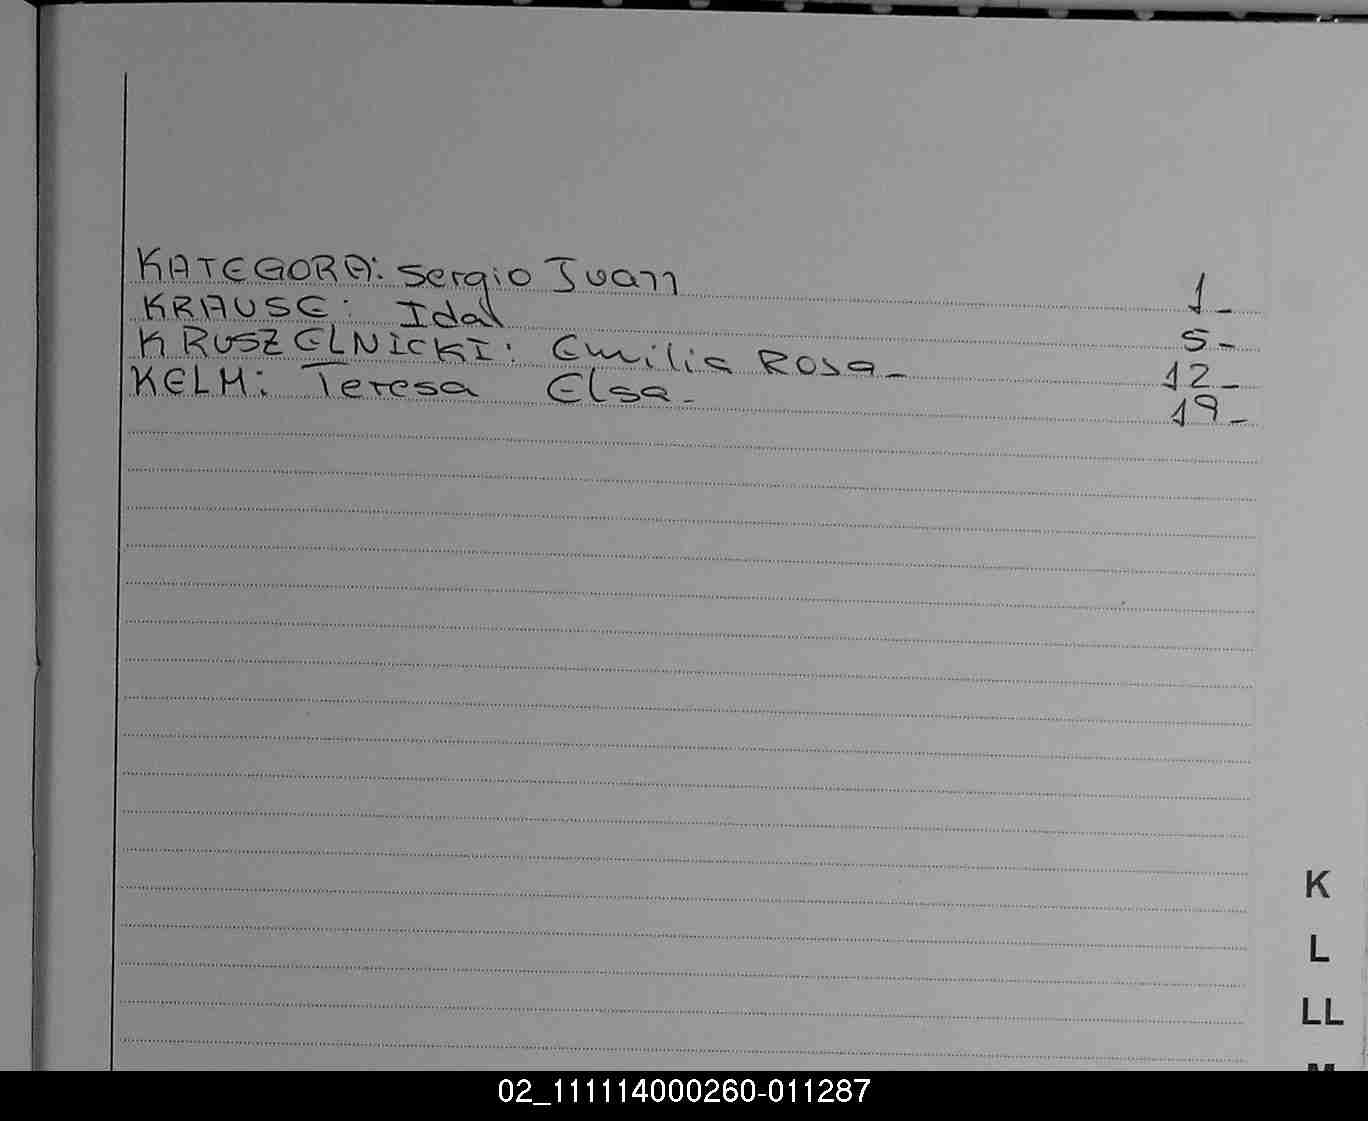 KATEGORA: Sergio Juan 1_
KRAUSE: Idal 5_
KRUSZELNICKI: Emilia Rosa_ 12_
KELM: Teresa Elsa_ 19_
K
L
LL
M
02_111114000260-011287